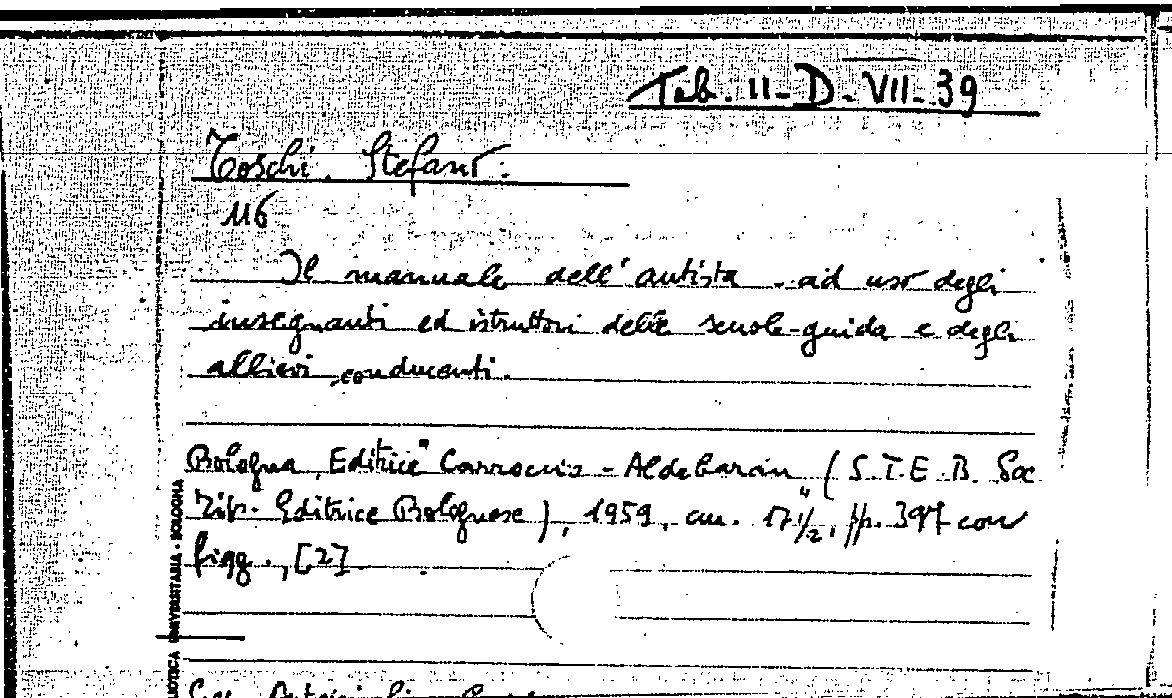 Tab. II - D. VII. 39
Toschi. Stefano.
116
Il manuale dell'autista - ad uso degli
insegnanti ed istruttori delle scuole-guida e degli
allievi conducenti.
Bologna, Editrice "Carroccio - Aldebaran" (S.T.E.B. Soc
Tip. Editrice Bolognese), 1959, cm. 17 1/2, pp. 397 con
figg., [2]
BIBLIOTECA UNIVERSITARIA - BOLOGNA